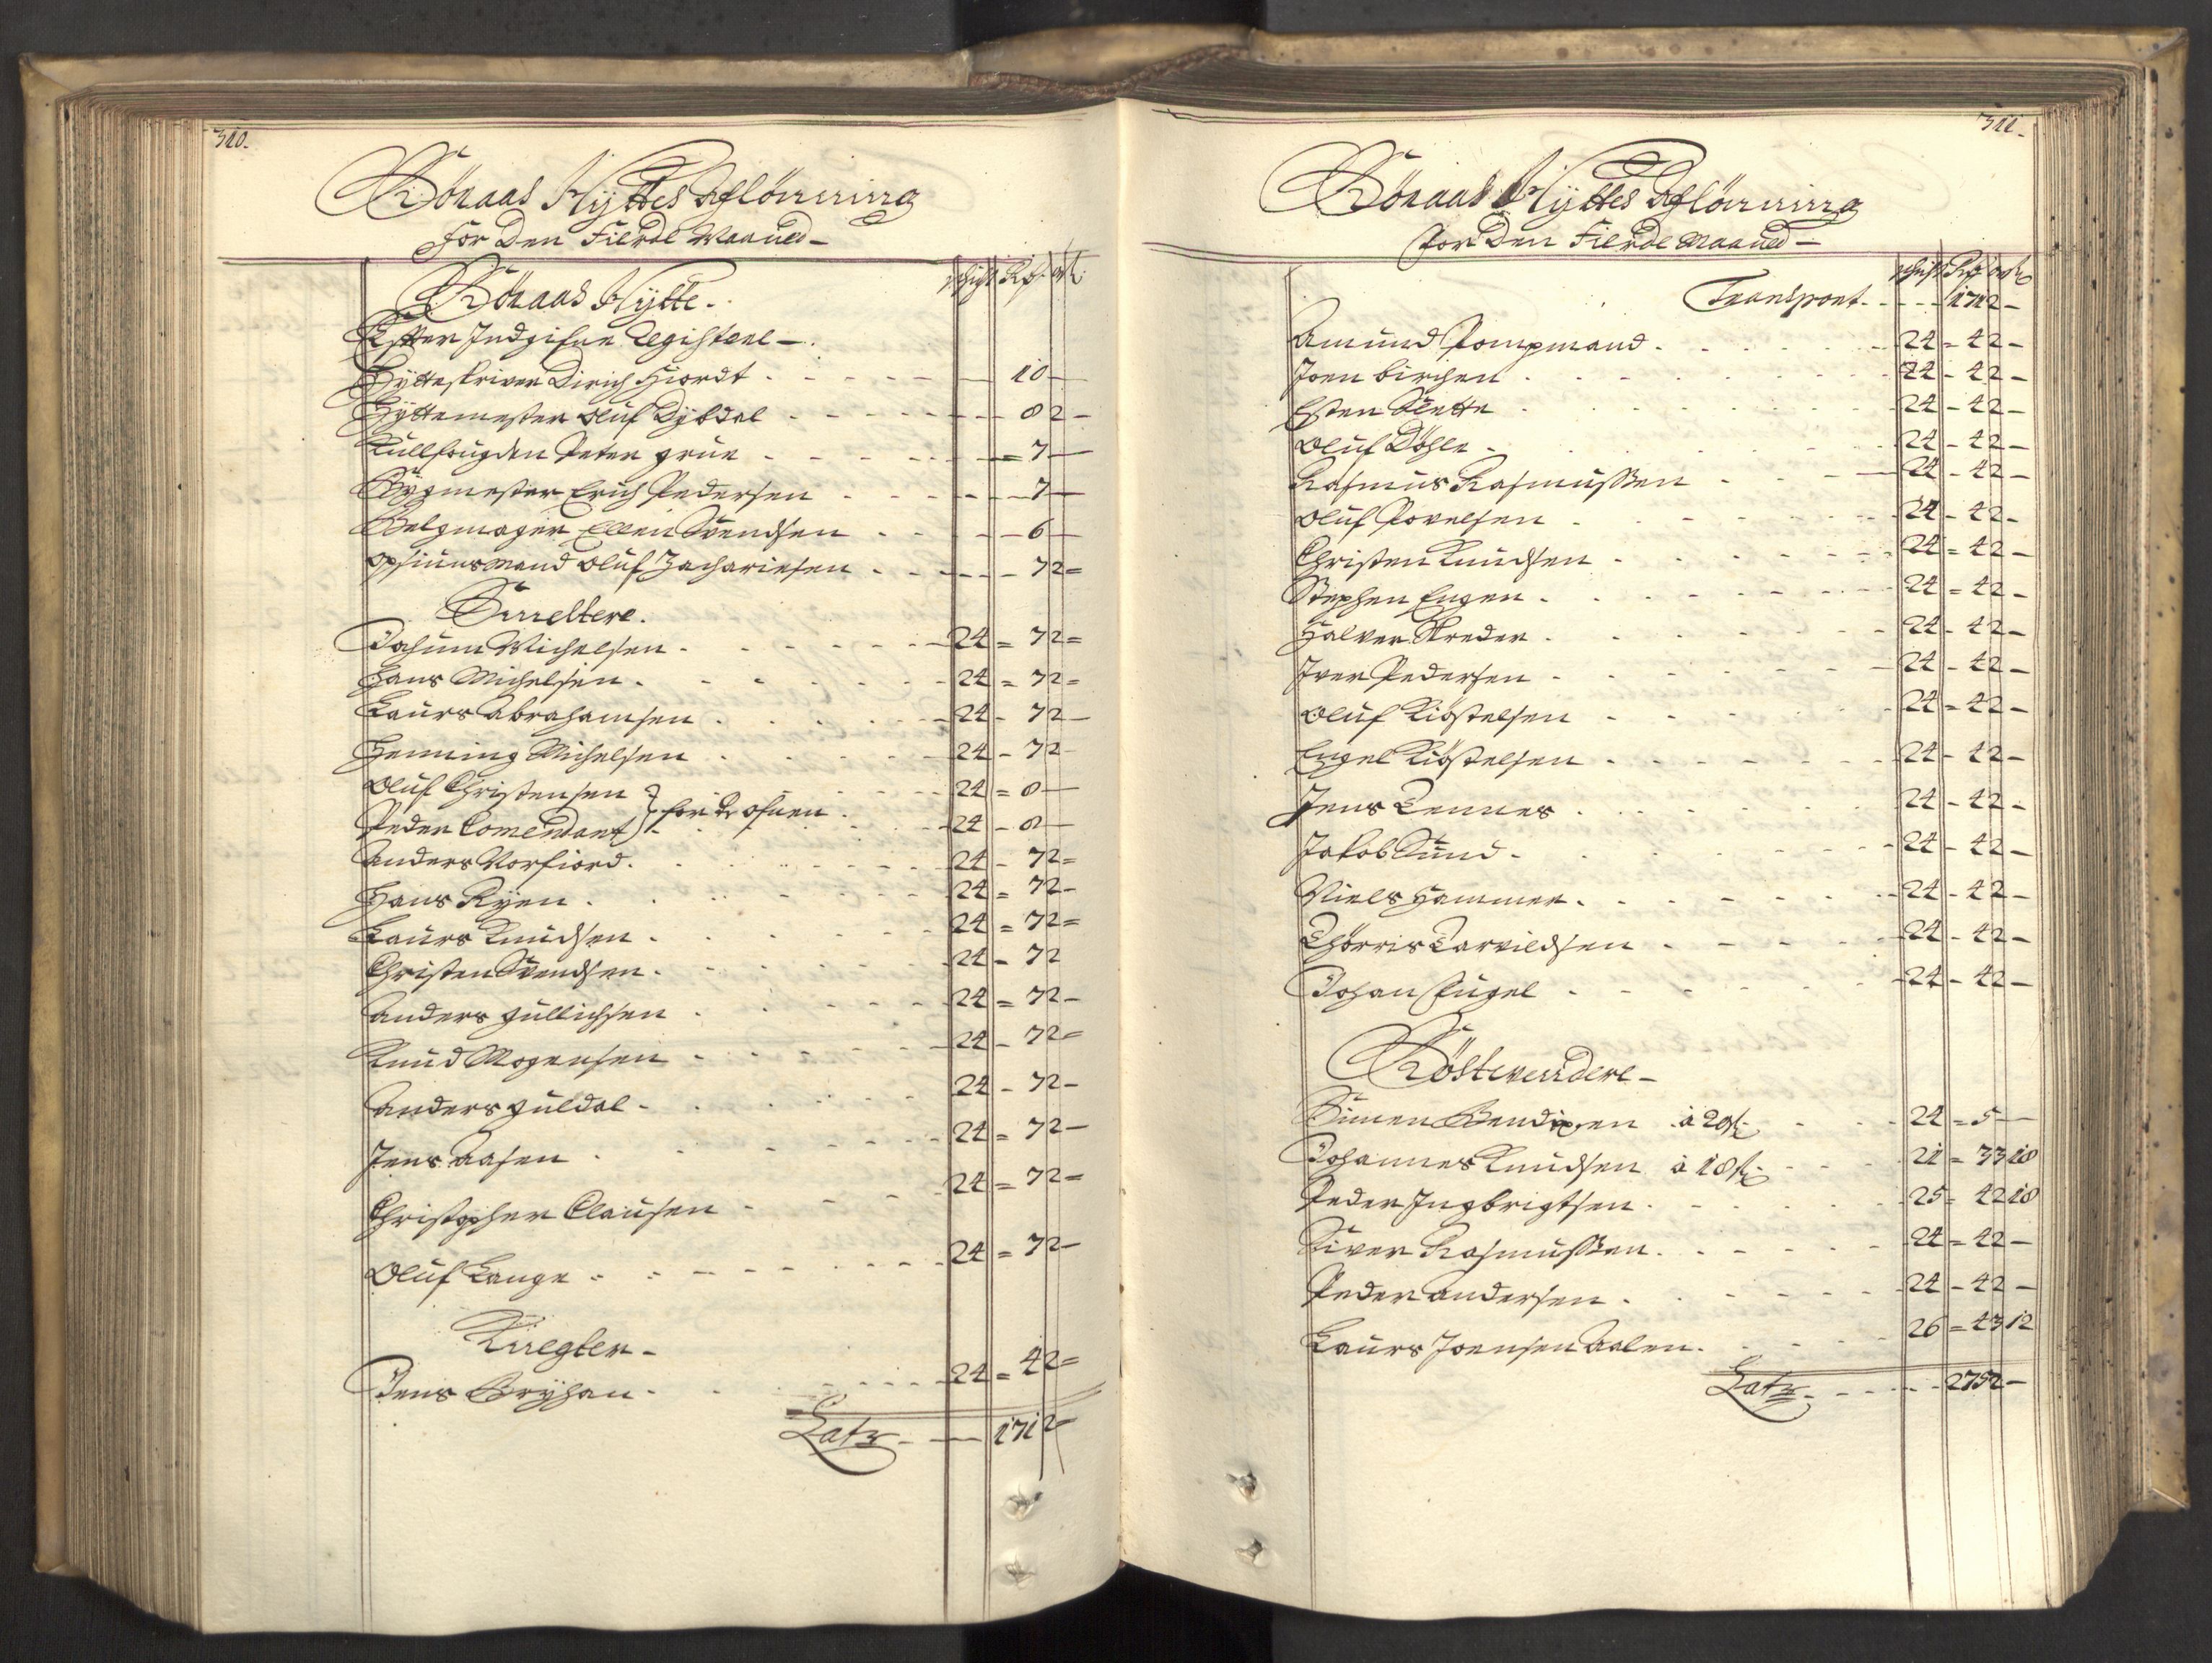 310.
Röraas Hyttes Aflönning
for Den Fierde Maaned-
Schigt Rdr ort s
Röraas Hytte.
Efter Indgifne Register-
Hytteskriver Dirich Hiordt - - 10 -
Hyttemester Oluf Dybdal - - 8 2 -
Kullfougden Peter grüe - - 7 -
Bygmester Erich Pedersen - - 7 -
Belgmager Ellen Svendsen - - 6 -
Opsiunsmand Oluf Zachariesen - - 7 2 =
Smeltere.
Jochum Michelsen - 24 = 7 2 =
Hans Michelsen - 24 = 7 2 =
Laurs Abrahamsen - 24 - 7 2 -
Henning Michelsen - 24 - 7 2 -
Oluf Christensen - 24 = 8 -
Peder Comendant } for 2 ofnen - 24 - 8 -
Anders Norfiord - 24 - 7 2 =
Hans Ryen - 24 = 7 2 -
Laurs Knudsen - 24 = 7 2 =
Christen Svendsen - 24 - 7 2
Anders gullichsen - 24 = 7 2 -
Knud Mogensen - 24 - 7 2 =
Anders guldal - 24 - 7 2 -
Jens Aasen - 24 = 7 2 -
Christopher Clausen - 24 = 7 2 -
Oluf Lange - 24 = 7 2 -
Knegter-
Jens Bryhan - 24 = 4 2 =
Latr - 171 2 -
311.
Röraas Hyttes Aflönning
for Den Fierde Maaned-
Schigt Rdr ort s
Transport - 171 2 -
Amund Pompmand - 24 = 4 2 -
Joen birchen - 24 - 4 2 -
Esten Slette - 24 - 4 2 -
Oluf Döhle - 24 - 4 2 -
Rasmus Rasmussen - 24 - 4 2 -
Oluf Povelsen - 24 - 4 2 -
Christen Knudsen - 24 = 4 2 -
Stephen Engen - 24 = 4 2 -
Halver Skreder - 24 - 4 2 -
Iver Pedersen - 24 - 4 2 -
Oluf Kiöstelsen - 24 = 4 2 -
Engel Kiöstelsen - 24 - 4 2 -
Jens Tennes - 24 - 4 2 -
Jakob Sund - 24 - 4 2 -
Niels Hammer - 24 - 4 2 -
Thörris Tarvildsen - 24 - 4 2 -
Johan Fugel - 24 - 4 2 -
Röstevendere-
Simen Bendixen à 20 s - 24 = 5 -
Johannes Knudsen à 18 s - 21 = 3 3 18
Peder Ingbrigtsen - 25 = 4 2 18
Siver Rasmussen - 24 = 4 2 -
Peder Andersen - 24 - 4 2 -
Laurs Joensen Aalen - 26 = 4 3 12
Latr - 275 2 -